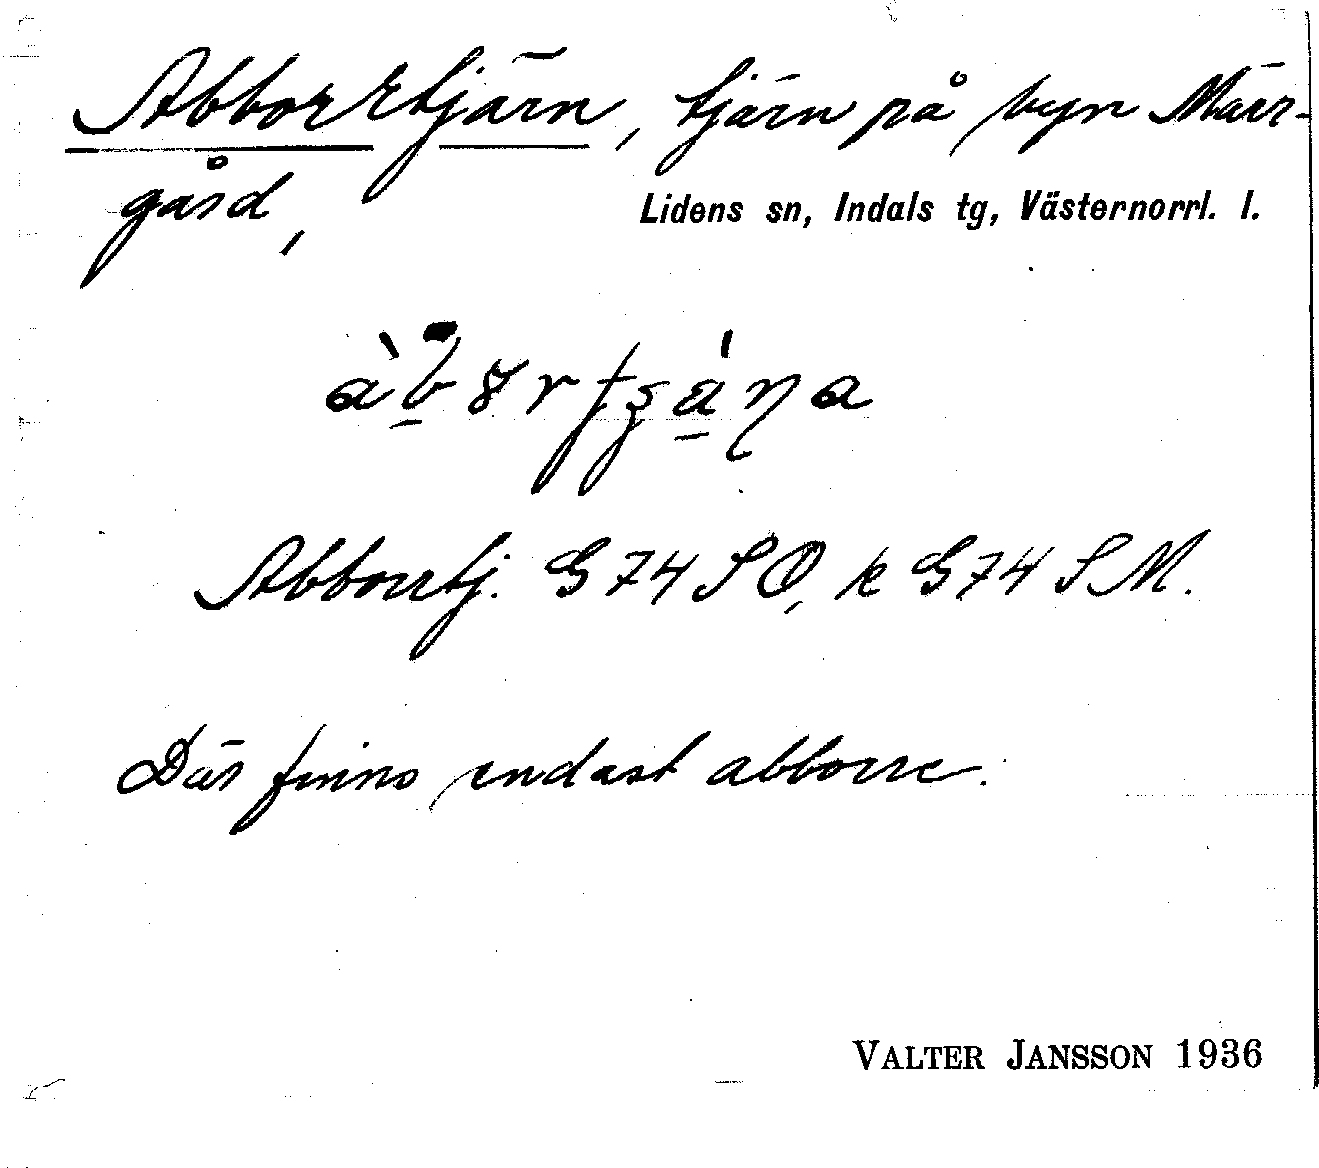 Abborrtjärn, tjärn på byn Mär-
gård,
Lidens sn, Indals tg, Västernorrl. l.
Abborrtj. G 74 S O, k G 74 S M.
Där finns endast abborre.
VALTER JANSSON 1936